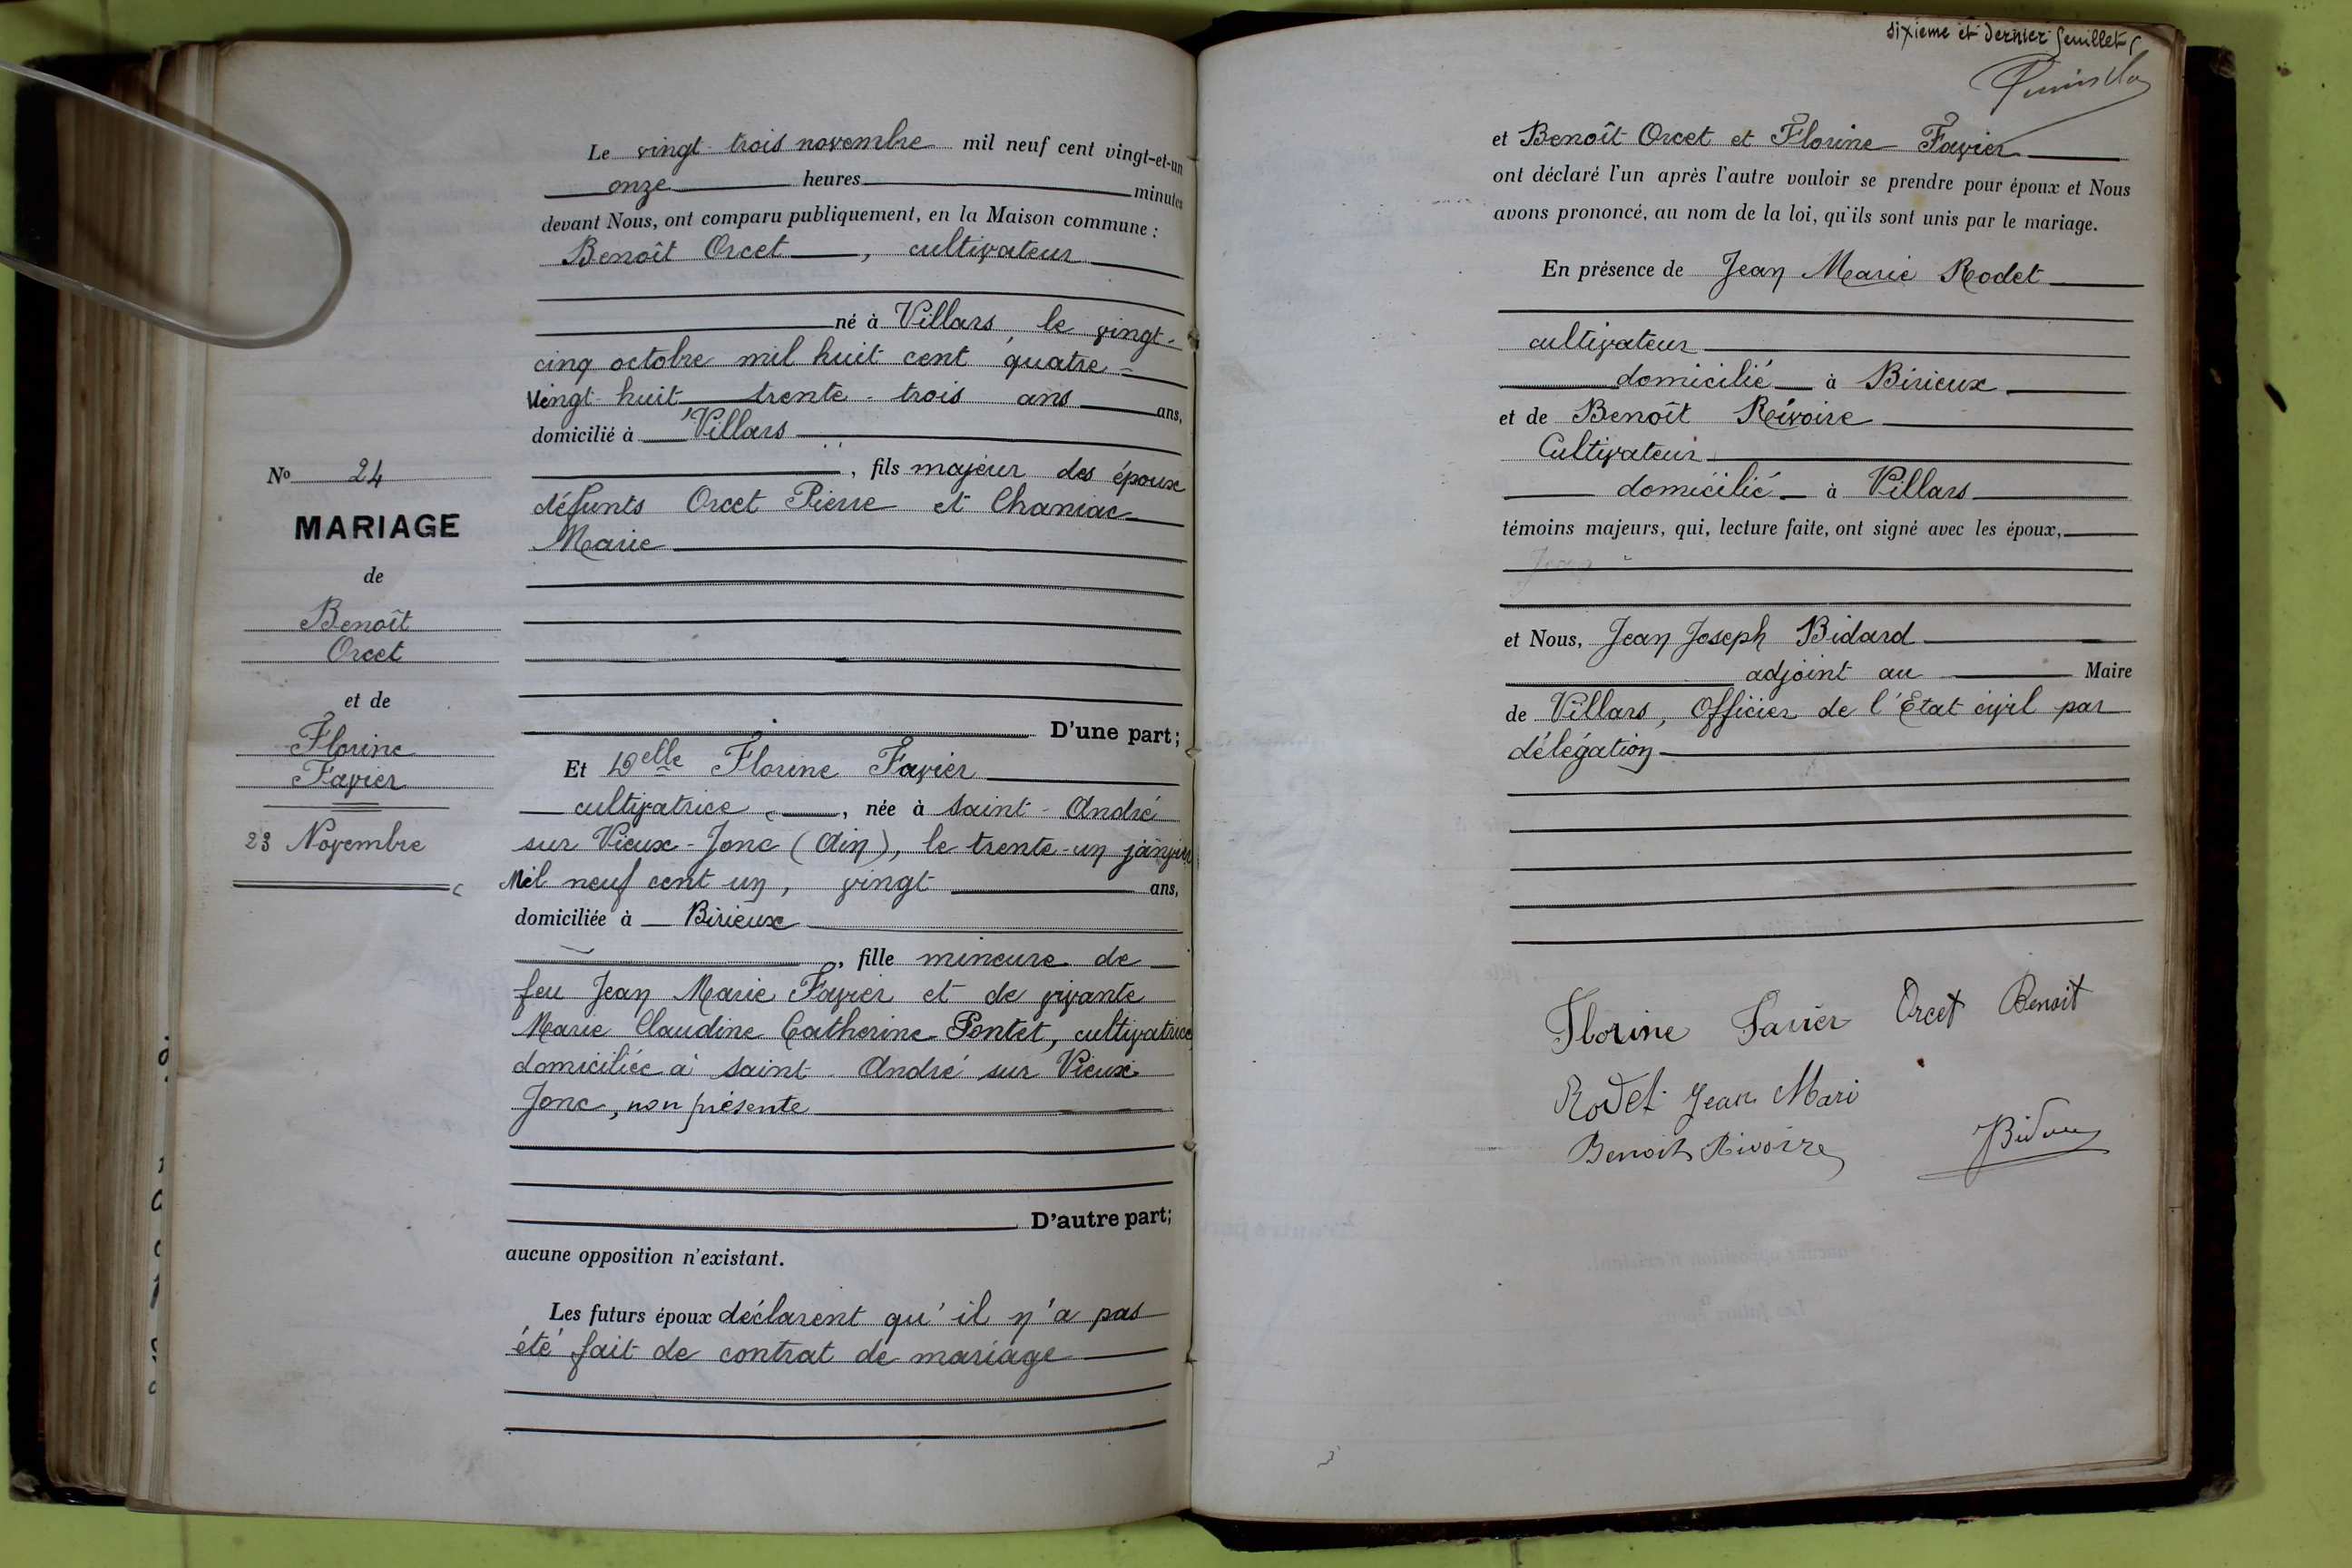 Le vingt-trois novembre mil neuf cent vingt-et-un
onze heures minutes
devant Nous, ont comparu publiquement, en la Maison commune :
Benoît Orcet, cultivateur
né à Villars, le vingt-
cinq octobre mil huit cent quatre-
vingt huit trente-trois ans ans,
domicilié à Villars
, fils majeur des époux
défunts Orcet Pierre et Chaniac
Marie
No 24
MARIAGE
de
Benoît
Orcet
et de
Florine
Favier
23 Novembre
D'une part;
Et Delle Florine Favier
cultivatrice, née à Saint-André
sur Vieux-Jonc (Ain), le trente-un janvier
Mil neuf cent un, vingt ans,
domiciliée à Birieux
, fille mineure de
feu Jean Marie Favier et de vivante
Marie Claudine Catherine Pontet, cultivatrice,
domiciliée à Saint-André sur Vieux
Jonc, non présente
D'autre part;
aucune opposition n'existant.
Les futurs époux déclarent qu'il n'a pas
été fait de contrat de mariage
sixième et dernier feuillet
et Benoît Orcet et Florine Favier
ont déclaré l'un après l'autre vouloir se prendre pour époux et Nous
avons prononcé, au nom de la loi, qu'ils sont unis par le mariage.
En présence de Jean Marie Rodet
cultivateur
domicilié à Birieux
et de Benoît Rivoire
Cultivateur
domicilié à Villars
témoins majeurs, qui, lecture faite, ont signé avec les époux,
et Nous, Jean Joseph Bidard
adjoint au Maire
de Villars, Officier de l'Etat civil par
délégation
Florine Favier Orcet Benoit
Rodet Jean Mari
Benoit Rivoire